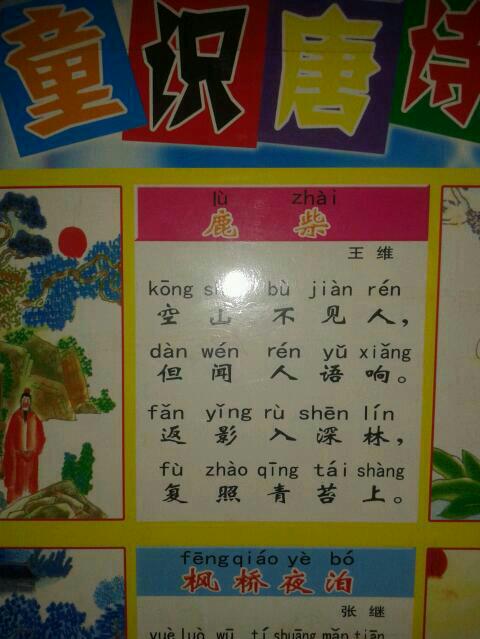 童识唐诗
lù zhài
鹿柴
王维
kōng bù jiàn rén
空山不见人，
dàn wén rén yǔ xiǎng
但闻人语响。
fǎn yǐng rù shēn lín
返影入深林，
fù zhào qīng tái shàng
复照青苔上。
fēng qiáo yè bó
枫桥夜泊
张继
yuè luò wū tí shuāng mǎn tiān